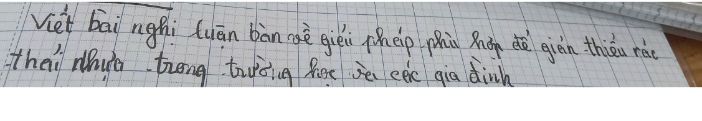 Viết bài nghị luận bàn về giải pháp phù hợp để giản thiểu rác
thải nhựa trong trường học và các gia đình